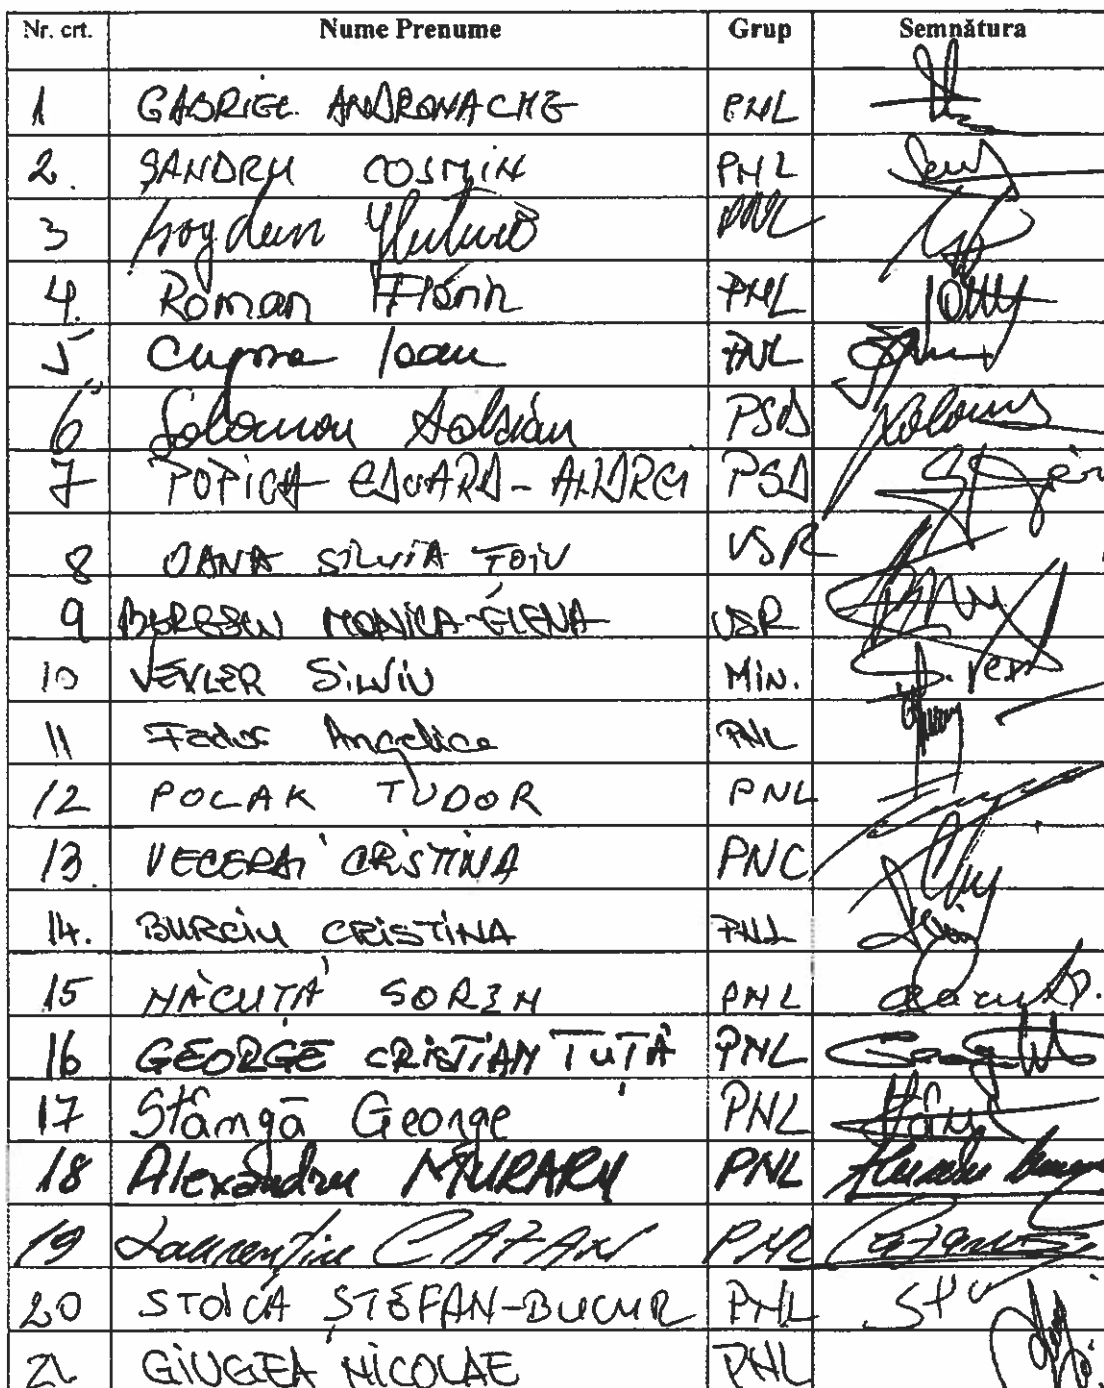 Nr. crt. Nume Prenume Grup Semnătura
1 GABRIEL ANDRONACHE PNL
2. ȘANDRU COSMIN PNL
3 Bogdan Huțucă PNL
4. Roman Florin PNL
5 Cupșa Ioan PNL
6 Solomon Adrian PSD
7 POPICA EDUARD-ANDREI PSD
8 OANA SILVIA ȚOIU USR
9 BERESCU MONICA-ELENA USR
10 VEXLER SiLViU MiN.
11 Fădor Angelica PNL
12 POLAK TUDOR PNL
13 VECERDI CRISTINA PNL
14. BURCIU CRISTINA PNL
15 NĂCUȚĂ SORIN PNL
16 GEORGE CRISTIAN TUȚĂ PNL
17 Stângă George PNL
18 Alexandru MURARU PNL
19 Laurențiu CAZAN PNL
20 STOICA ȘTEFAN-BUCUR PNL
21 GIUGEA NICOLAE PNL